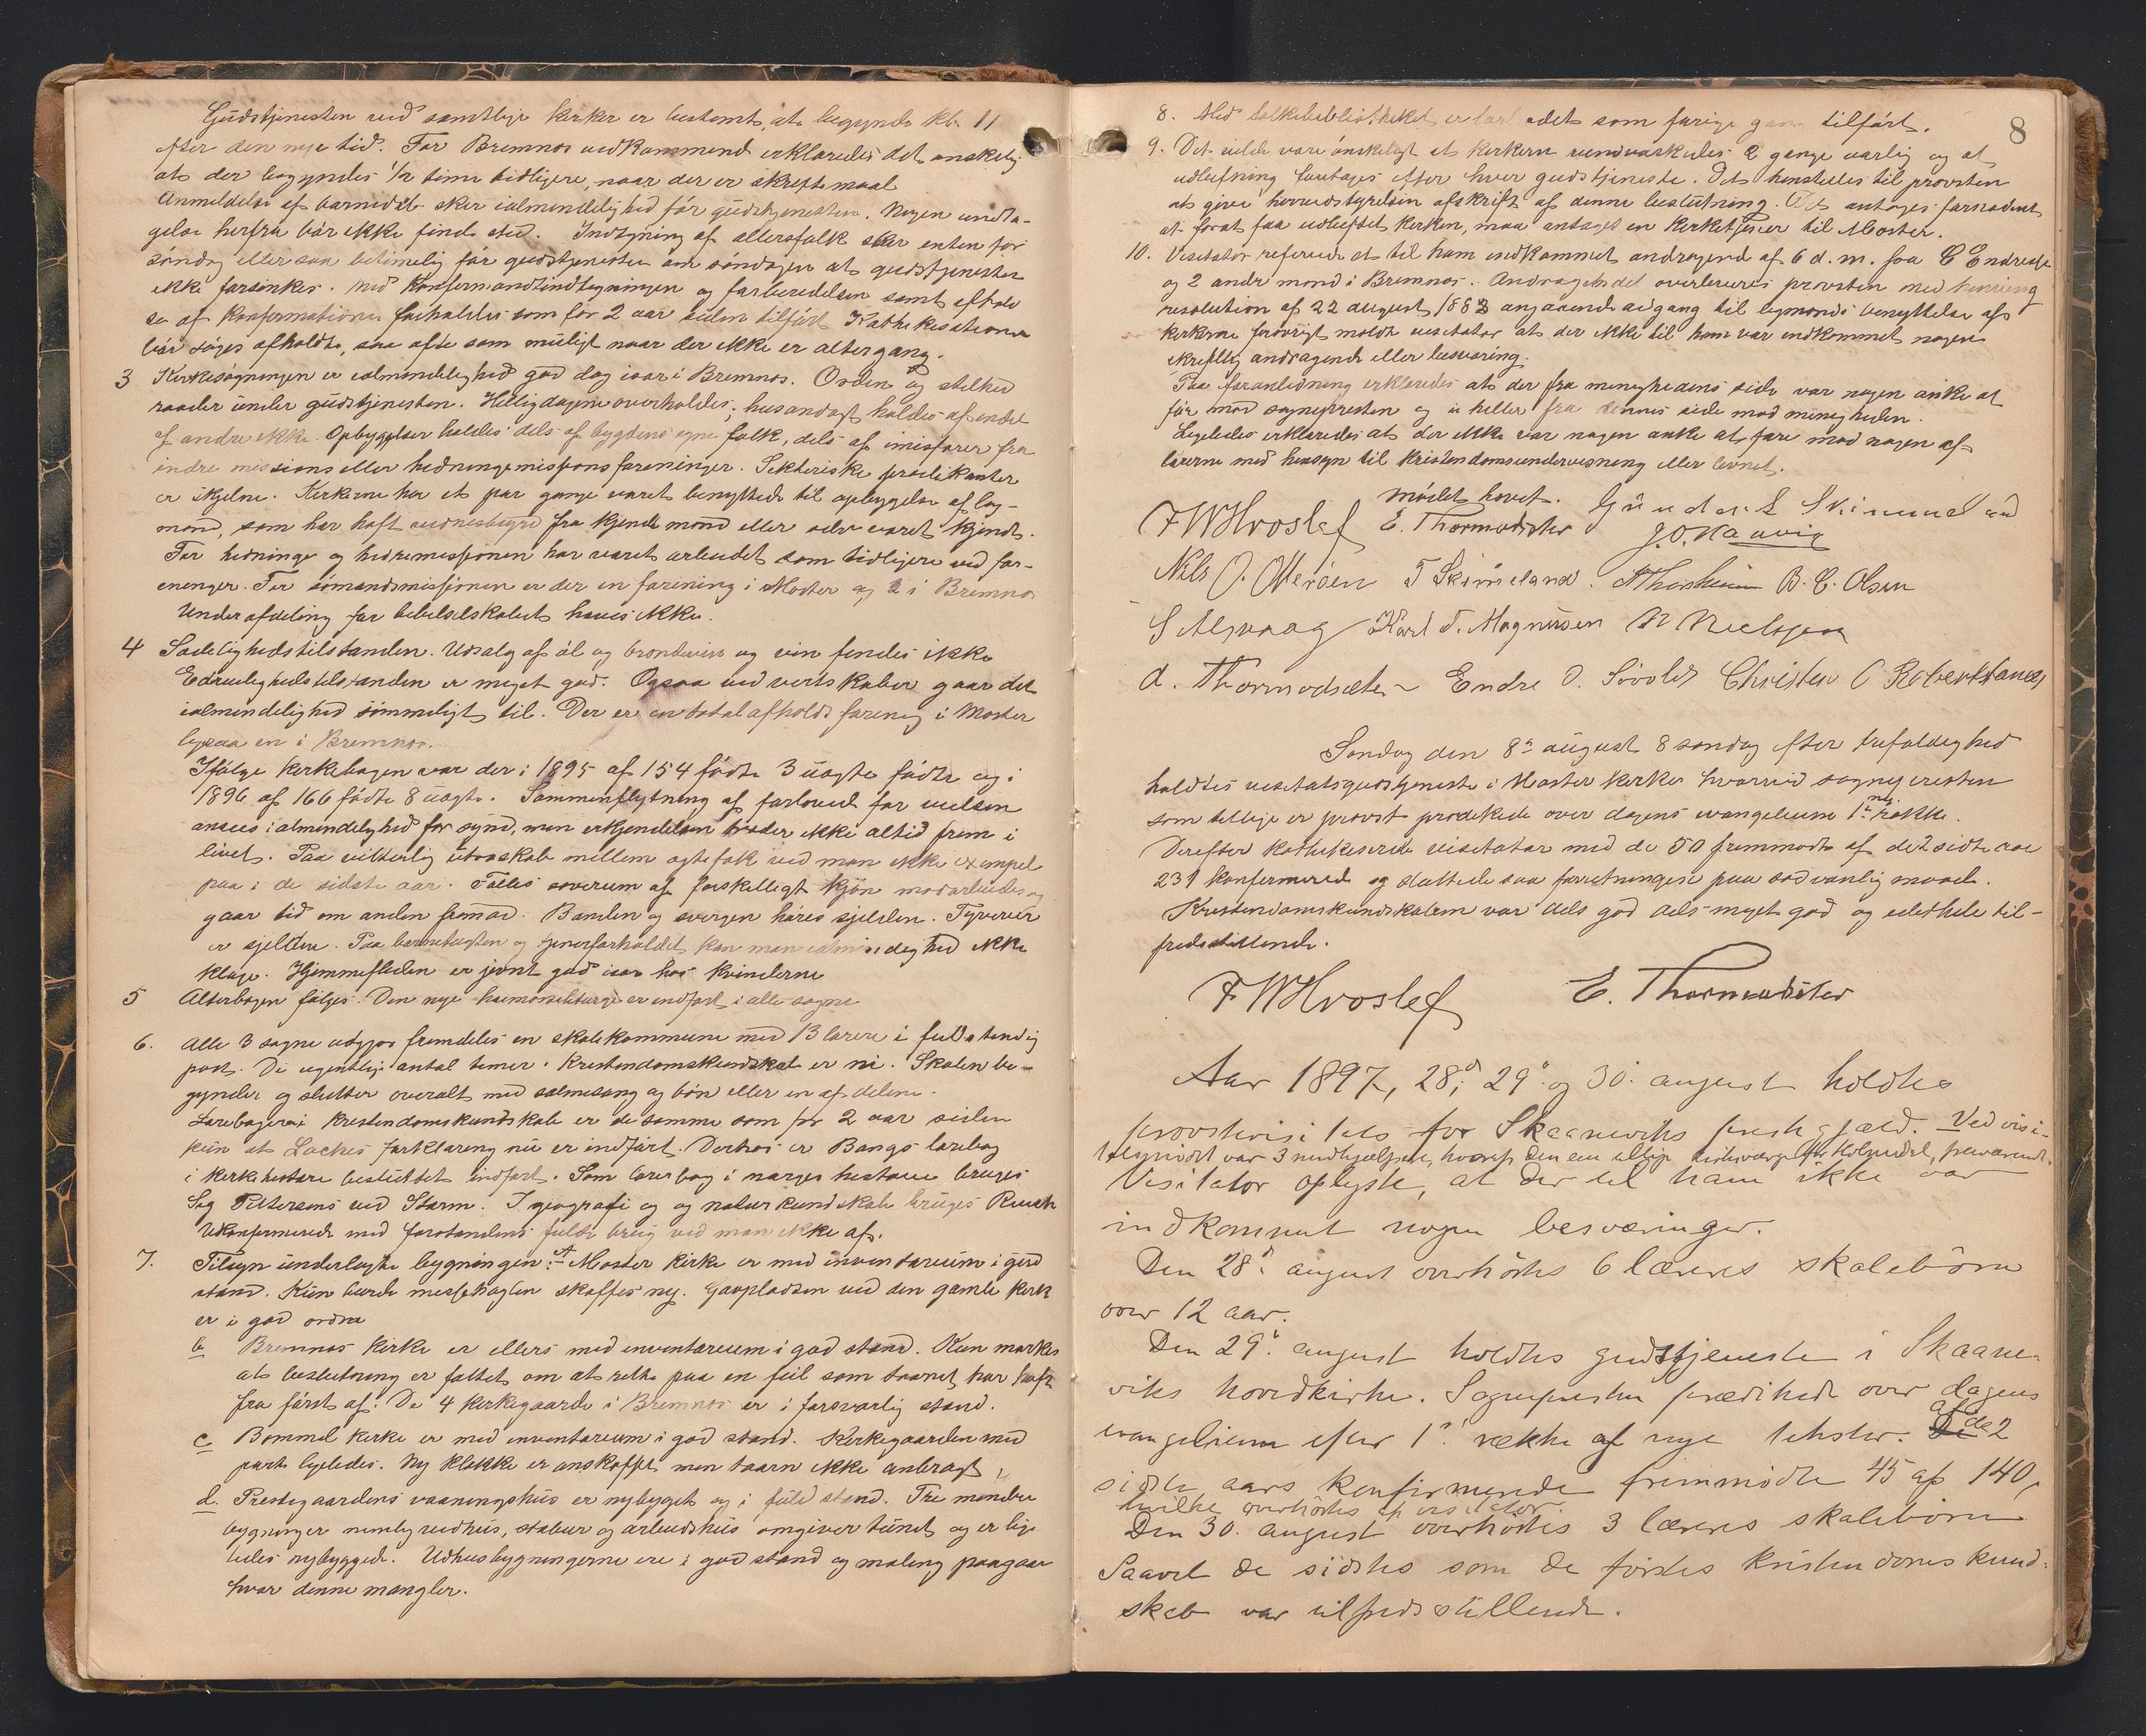 Gudstjenesten ved samtlige kirker er bestemt at begynde kl. 11
efter den nye tid. For Bremnes vedkommend erklæredes det ønskelig
at der begyndes 1/2 time tidligere, naar der er skriftemaal
Anmeldelse af barnedåb sker ialmindelighed før gudstjenesten. Nogen undta-
gelse herfra bør ikke finde sted. Indtegning af altersfolk sker enten før
søndag eller saa betimelig før gudstjenesten om søndagen at gudstjenesten
ikke forsinkes. Med konfirmandindtegningen og forberedelsen samt
af konfirmationen forholdes som for 2 aar siden tilført Kathekisationer
bør søges afholdte, saa ofte som muligt naar der ikke er altergang.
3 Kirkesøgningen er ialmindelighed god dog især i Bremnes. Orden og stilhed
raader under gudstjenesten. Helligdagene overholdes; husandagt holdes af endel
af andre ikke. Opbyggelser holdes dels af bygdens egne folk, dels af emisærer fra
indre missions eller hedningemissions foreninger. Sekteriske predikanter
er skjeldne. Kirkerne har et par gange været benyttede til opbyggelse af læg-
mænd, som har haft vidnesbyrd fra kjendte mænd eller selv været kjendt.
For hedninge og hedremissjonen har været arbeidet som tidligere ved for-
eninger. For sømandsmissjonen er der en forening i Moster og 2 i Bremnes
Underafdeling for bibelselskabet haves ikke.
4 Sædelighedstilstanden. Udsalg af øl og brændevin og vin findes ikke
Edruelighedstilstanden er meget god. Ogsaa ved vertskaber gaar det
ialmindelighed sømmeligt til. Der er en totalafholds forening i Moster
ligesaa en i Bremnes.
Ifølge kirkebogen var der i 1895 af 154 fødte 3 uægte fødte og i
1896 af 166 fødte 8 uægte. Sammenflytning af forlovede før vielsen
ansees ialmindelighed for synd, men erkjendelsen træder ikke altid frem i
livet. Paa vitterlig utroskab mellem ægtefolk ved man ikke exempel
paa i de sidste aar. Fælles soverum af forskelligt kjøn modarbeides og
gaar tid om anden fremad. Banden og svergen høres sjelden. Tyverier
er sjeldne. Paa barnetugten og tjenerforholdet kan man ialmindelighed ikke
klage. Hjemmefliden er jevnt god især hos kvinderne
5 Alterbogen følges. Den nye messeliturgi er indført i alle sogne
6. Alle 3 sogne udgjør fremdeles en skolekommune med 13 lærere i fuldstendig
post. De ugentlige antal timer i Kristendomskundskab er ni. Skolen be-
gynder og slutter overalt med salmesang og bøn eller en af delene.
Lærebøgerne i kristendomskundskab er de samme som for 2 aar siden
kun at forklaring nu er indført. Derhos er Bangs lærebog
i kirkehistorie besluttet indført. Som lærebog i norges historie bruges
Sog Pettersens ved Storm. I geografi og og naturkundskab bruges
Ukonfirmerede med forstandens fulde brug ved man ikke af.
7. Tilsyn underlagte bygninger: A Moster kirke er med inventarium i god
stand. Kun burde messehaglen skaffes ny. Gravpladsen ved den gamle kirke
er i god orden
b Bremnes kirke er ellers med inventarium i god stand. Kun merkes
at beslutning er fattet om at rette paa en feil som taarnet har haft
fra først af. De 4 kirkegaarde i Bremnes er i forsvarlig stand.
c Bømmel kirke er med inventarium i god stand. Kirkegaarden med
port ligeledes. Ny klokke er anskaffet men taarn ikke anbragt
d. Prestegaardens vaaningshus er nybygget og i fuld stand. Tre mindre
bygninger nemlig vedhus, stabur og arbeidshus omgiver tunet og er lige
ledes nybyggede. Udhusbygningerne ere i god stand og maling paagaar
hvor denne mangler.
8
8. Med folkebibliotheket er som forrige gang tilført.
9. Det vilde være ønskeligt at kirkerne rundvaskedes 2 gange aarlig og at
udluftning foretages efter hver gudstjeneste. Det henstilles til provsten
at give herredsstyrelsen afskrift af denne beslutning. Det antages fornødent
at forat faa udluftet kirken, maa antages en kirketjener til Moster.
10. Visitator refererede et til ham indkommet andragende af 6 d. m. fra C Endresen
og 2 andre mænd i Bremnes. Andragendet overleveres provsten med henvisning
resolution af 22 august 1888 angaaende adgang til lægmænds benyttelse af
kirkerne forøvrigt meldte visitator at der ikke til ham var indkommet nogen
skriftlig andragende eller besværing.
Paa foranledning erklæredes at der fra menighedens side var nogen anke at
føre mod sognepresten og ei heller fra dennes side mod menigheden.
Ligeledes erklæredes at der ikke var nogen anke at føre mod nogen af
lærerne med hensyn til Kristendomsundervisning eller levnet.
mødet hævet.
F W Hvoslef E. Thormodsæter Gunder S Skimmeland
J. O. Naavig
Nils O. T Skimeland. A Thorsheim B. C. Olsen
S Alsvaag Karl T. Magnussen N Nielsen
A. Thormodsæter Endre O. Søvold Christen C Robertstanes
Søndag den 8de august 8 søndag efter trefoldighed
holdtes visitatsgudstjeneste i Moster kirke hvorved sognepresten
som tillige er provst prædikede over dagens evangelium 1ste nye række.
Derefter kathekiserede visitator med de 50 fremmødte af de 2 sidste aar
231 konfirmerede og sluttede saa forretningen paa sædvanlig maade.
Kristendomskundskaben var dels god dels meget god og idethele til-
fredsstillende.
F W Hvoslef E. Thormodsæter
Aar 1897, 28de, 29de og 30. august holdtes
provstevisitats for Skaaneviks prestegjæld. Ved visi-
tasmødet var 3 medhjælpere, hvoraf den ene tillige kirkeværge
Visitator oplyste, at der til ham ikke var
indkommet nogen besværinger.
Den 28de august overhørtes 6 læreres skolebørn
over 12 aar.
Den 29de august holdtes gudstjeneste i Skaane-
viks hovedkirke. Sognepresten prædikede over dagens
evangelium efter 1ste række af nye tekster. Af de 2
sidste aars konfirmerede fremmødte 45 af 140,
hvilke overhørtes af visitator.
Den 30. august overhørtes 3 læreres skolebørn
Saavel de sidstes som de førstes kristendomskund-
skab var tilfredsstillende.